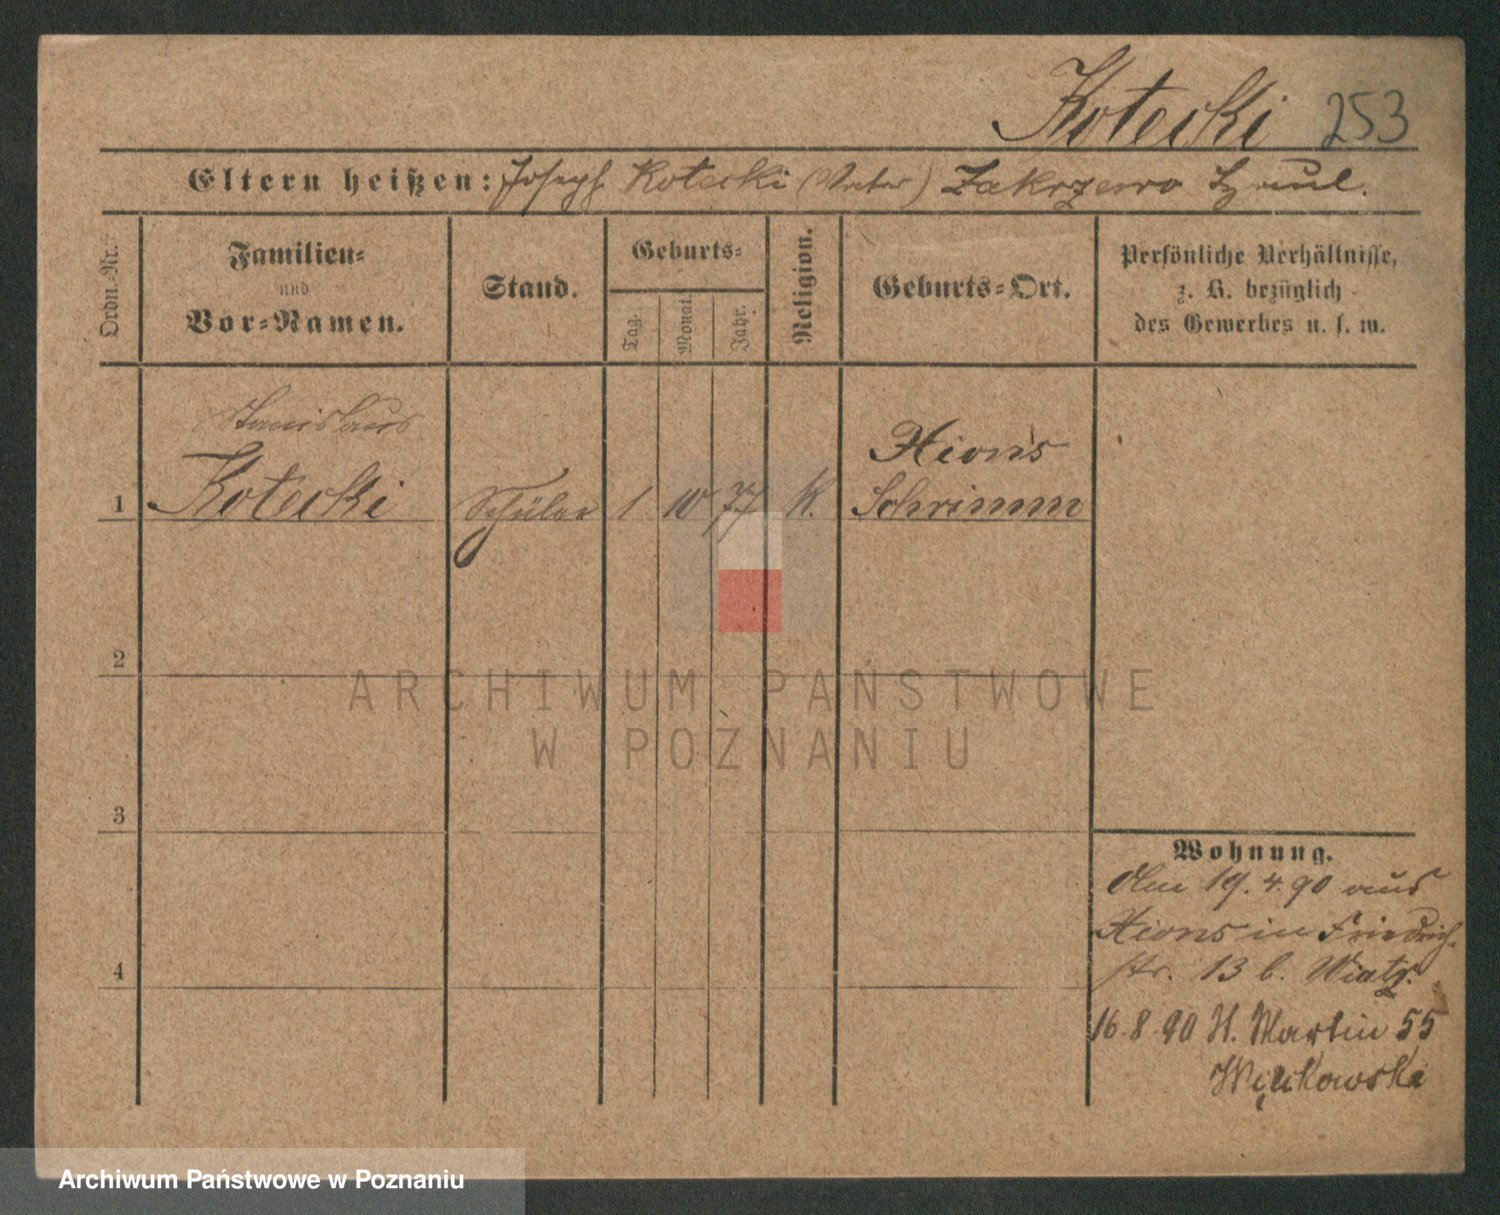 Kotecki 253
Eltern heißen: Joseph Kotecki (Vater) Zakrzewo
Ordn.-Nr.
Familien-
und
Vor-Namen.
Stand.
Geburts-
Tag.
Monat.
Jahr.
Religion.
Geburts-Ort.
Persönliche Verhältnisse,
z. B. bezüglich
des Gewerbes u. s. w.
Stanislaus
Xions
1 Kotecki Schüler 1 10 77 K. Schrimm
2
ARCHIWUM PAŃSTWOWE
W POZNANIU
3
Wohnung.
19.4.90 aus
Xions in Friedrich-
4
str. 13 b.
16.8.90 St. Martin 55
Archiwum Państwowe w Poznaniu